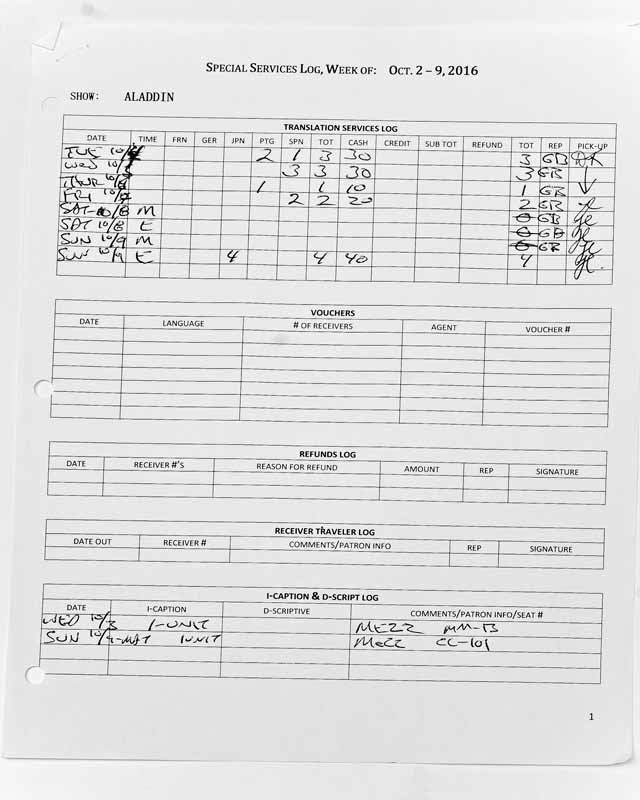 SPECIAL SERVICES LOG, WEEK OF: OCT. 2 – 9, 2016
SHOW: ALADDIN
TRANSLATION SERVICES LOG
DATE TIME FRN GER JPN PTG SPN TOT CASH CREDIT SUB TOT REFUND TOT REP PICK-UP
TUE 10/4 2 1 3 30 3 GB DK
WED 10/5 3 3 30 3 GB
THUR 10/6 1 1 10 1 GB
FRI 10/7 2 2 20 2 GB
SAT 10/8 M 0 GB
SAT 10/8 E 0 GB
SUN 10/9 M 0 GB
SUN 10/9 E 4 4 40 4
VOUCHERS
DATE LANGUAGE # OF RECEIVERS AGENT VOUCHER #
REFUNDS LOG
DATE RECEIVER #'S REASON FOR REFUND AMOUNT REP SIGNATURE
RECEIVER TRAVELER LOG
DATE OUT RECEIVER # COMMENTS/PATRON INFO REP SIGNATURE
I-CAPTION & D-SCRIPT LOG
DATE I-CAPTION D-SCRIPTIVE COMMENTS/PATRON INFO/SEAT #
WED 10/5 1-UNIT MEZZ MM-13
SUN 10/9-MAT 1UNIT MEZZ CC-101
1